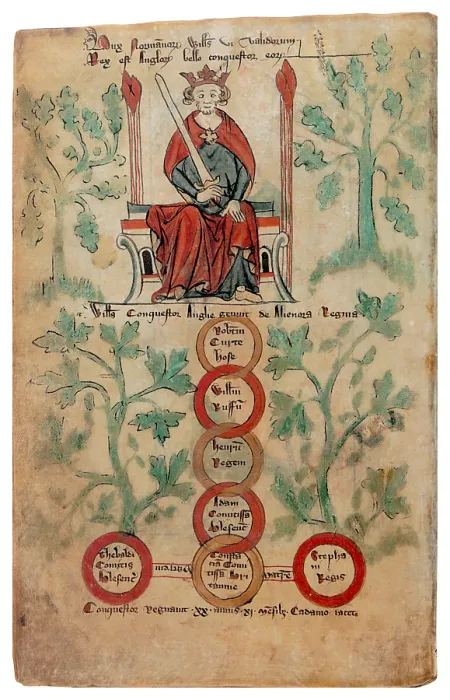 Dux Normannor Willm̄s vi validorum
Rex est Anglor bello conquestor eor
Willm̄s Conquestor Anglie genuit de Alienora Regina
Robtm
Curte
hose
Willm
Ruffū
henrū
Regem
Adam
Comitissā
blesenc̄
Thebaldi
Comitis
blesenc̄
Consta
ciā Comi
tissā Bri
tannie
matre
Stepha
ni
Regis
Conquestor Regnauit ·xx· annis ·xi· mēsib; Cadamo iacet